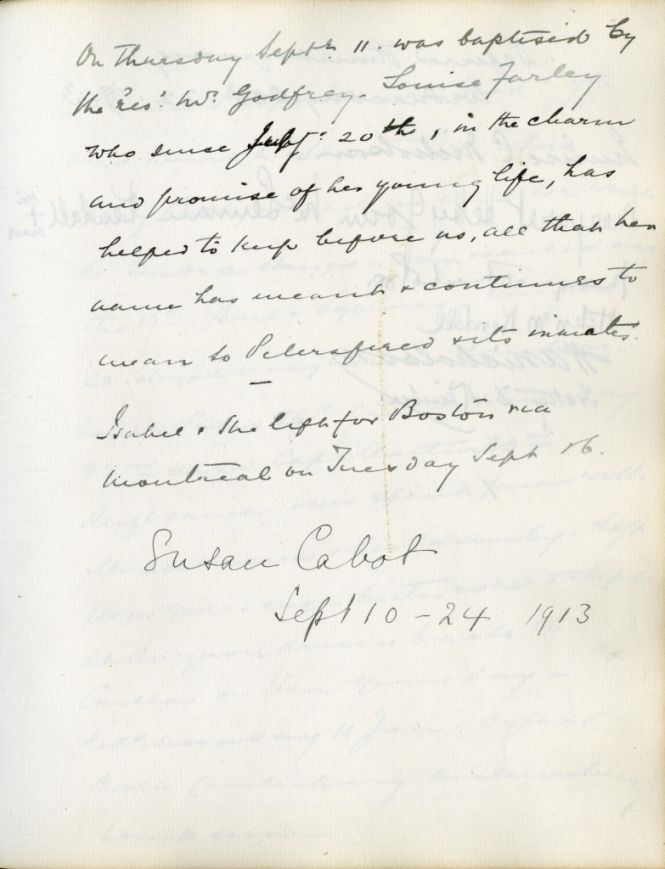 On Thursday Septr 11. was baptised by
the Revd. Mr. Godfrey. Louise Farley
who since July 20th, in the charm
and promise of her young life, has
helped to keep before us, all that her
name has meant & continues to
mean to Petersfield & its inmates.
Isabel & she left for Boston via
Montreal on Tuesday Sept 16.
Susan Cabot
Sept 10 - 24 1913